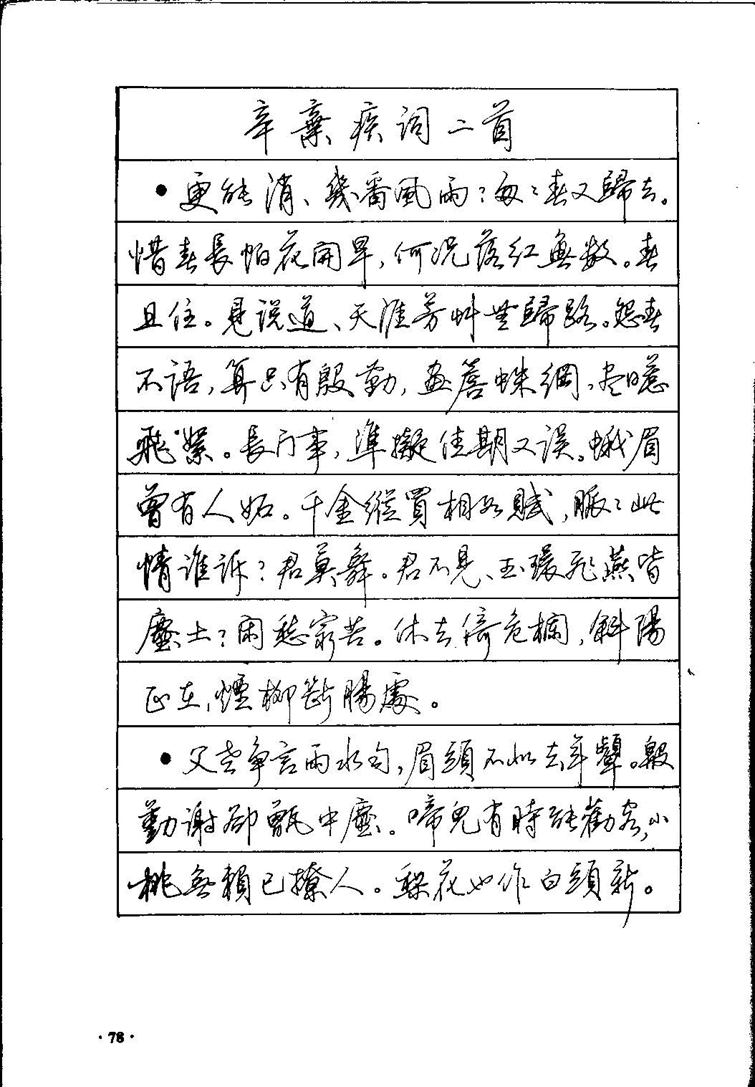 辛棄疾词二首
•更能消、幾番風雨?匆々春又歸去。
惜春長怕花開早,何况落紅無数。春
且住。見说道、天涯芳草無歸路。怨春
不语,算只有殷勤,画簷蛛網,尽日惹
飛絮。長门事,準擬佳期又误。蛾眉
曾有人妬。千金縱買相如賦,脈々此
情谁诉?君莫舞。君不見、玉環飛燕皆
塵土?闲愁最苦。休去倚危欄,斜陽
正在,煙柳斷腸處。
•父老争言雨水匀,眉頭不似去年顰。殷
勤谢却甑中塵。啼鸟有時能勸客,小
桃無賴已撩人。梨花也作白頭新。
·78·